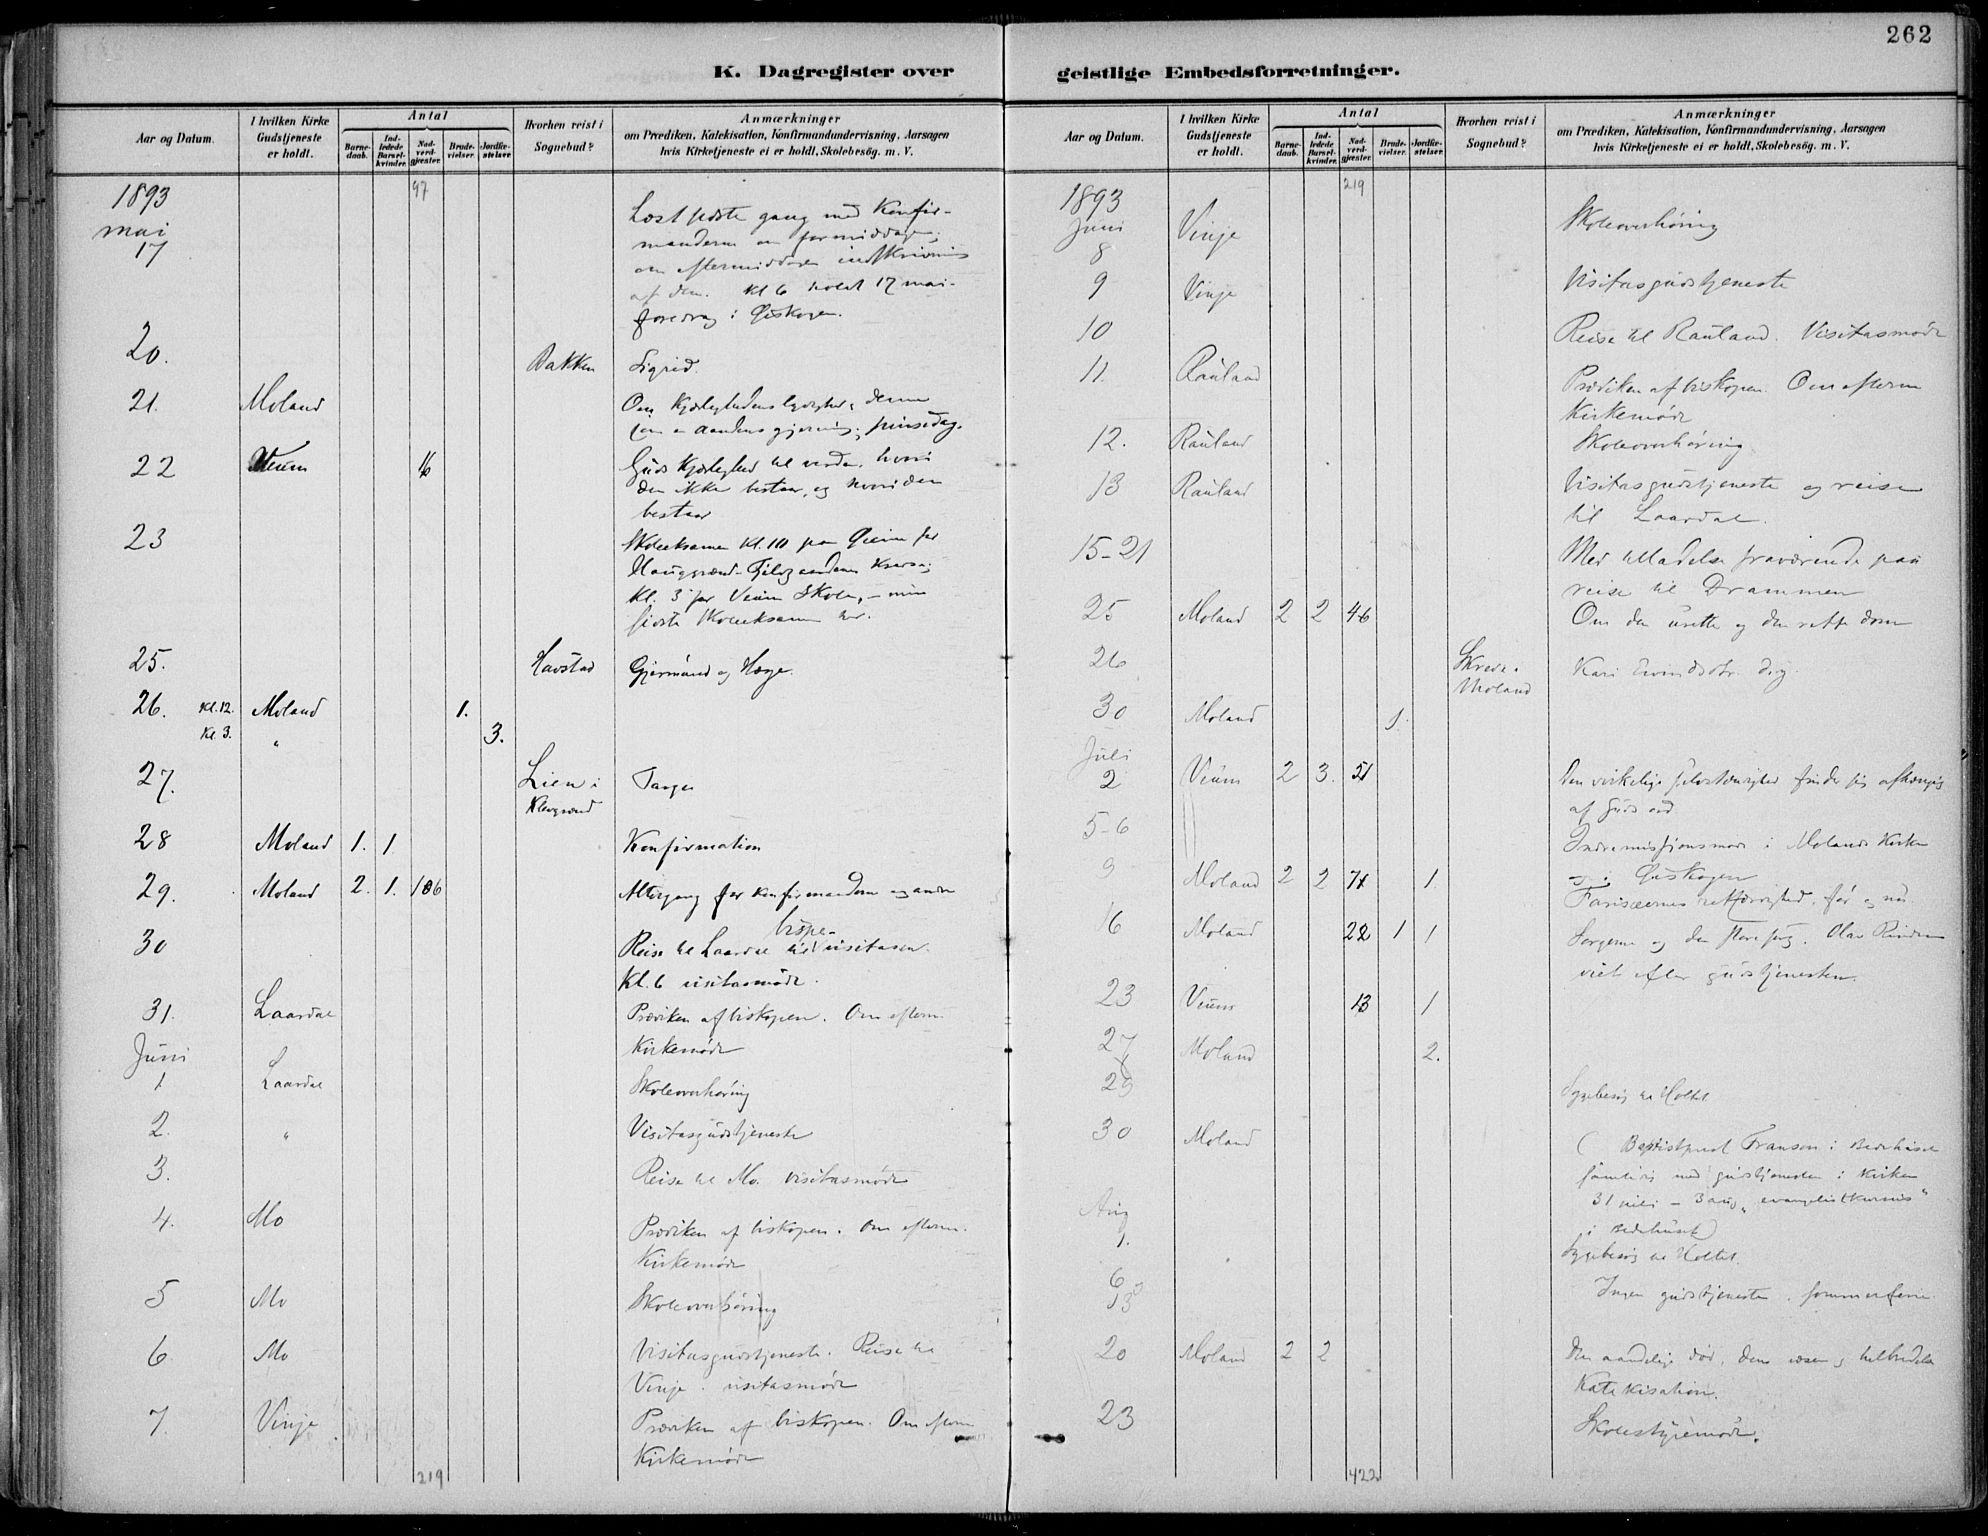 262
K. Dagregister over geistlige Embedsforretninger.
Aar og Datum. | I hvilken Kirke Gudstjeneste er holdt. | Antal | Barnedaab. | Indledede Barselkvinder. | Nadverdgjester. | Brudevielser. | Jordfæstelser. | Hvorhen reist i Sognebud? | Anmærkninger om Prædiken, Katekisation, Konfirmandundervisning, Aarsagen hvis Kirketjeneste ei er holdt, Skolebesøg. m. V.
97
1893
mai
17 Læst sidste gang med Konfir-
manderne om formiddagen;
om eftermiddagen indskrivning
af dem. Kl 6 holdt 17 mai-
foredrag i
20. Bakken Sigrid.
21. Moland Om Kjærlighedens
aandens gjerning; pinsedag.
22 Veum 16 Guds Kjærlighed til verden, hvori
den ikke bestaar, og hvori den
bestaar
23 Skoleeksamen Kl. 10 paa for
Kl. 3 for Veum Skole, – min
første Skoleeksamen her.
25. Havstad Gjermund og
26. Kl. 12. Moland 1.
Kl. 3. " 3.
27. Lien i Targe
Klevgrend
28 Moland 1. 1 Konfirmation
29. Moland 2. 1. 106 Altergang for konfirmanderne og andre
30 Reise til Laardal til bispe-visitasen.
Kl. 6 visitasmøde.
31. Laardal Prædiken af biskopen. Om efterm.
Kirkemøde
Juni
1 Laardal Skoleoverhøring
2. " Visitasgudstjeneste
3. Reise til Mo. visitasmøde
4. Mo Prædiken af biskopen. Om efterm.
Kirkemøde
5 Mo Skoleoverhøring
6 Mo Visitasgudstjeneste. Reise til
Vinje. visitasmøde
7. Vinje Prædiken af biskopen. Om efterm
Kirkemøde
219
Aar og Datum. | I hvilken Kirke Gudstjeneste er holdt. | Antal | Barnedaab. | Indledede Barselkvinder. | Nadverdgjester. | Brudevielser. | Jordfæstelser. | Hvorhen reist i Sognebud? | Anmærkninger om Prædiken, Katekisation, Konfirmandundervisning, Aarsagen hvis Kirketjeneste ei er holdt, Skolebesøg. m. V.
219
1893
Juni
8 Vinje Skoleoverhøring
9 Vinje Visitasgudstjeneste
10 Reise til Rauland. Visitasmøde
11. Rauland Prædiken af biskopen. Om efterm
Kirkemøde
12. Rauland Skoleoverhøring
13 Rauland Visitasgudstjeneste og reise
til Laardal.
15-21 Med tilladelse fraværende paa
reise til Drammen
25 Moland 2 2 46 Om den urette og den rette dom
26 Skrede i Moland Kari
30 Moland 1.
Juli
2 Veum 2 3. 51 Den virkelige selvstændighed finder sig afhængig
af Guds ord
5-6 Indremissionsmøde i Molands Kirke
og i
9 Moland 2 2 71 1 Farisæernes retfærdighed, før og nu.
16 Moland 22 1 1 Sorgerne og den store sorg. Olav
viet efter gudstjenesten.
23 Veum 13 1
27 Moland 2.
29 Sygebesøg til Holtet
30 Moland ( Baptistprest Franson i Bedehuset
samtidig med gudstjenesten i Kirken
31 juli – 3 aug „evangelistkursus"
i Bedehuset)
Aug
1. Sygebesøg til Holtet.
6
13 Ingen gudstjeneste, sommerferie
20 Moland 2 2 Den aandelige død, dens væsen og helbredelse
Katekisation.
23 Skolestyremøde.
422